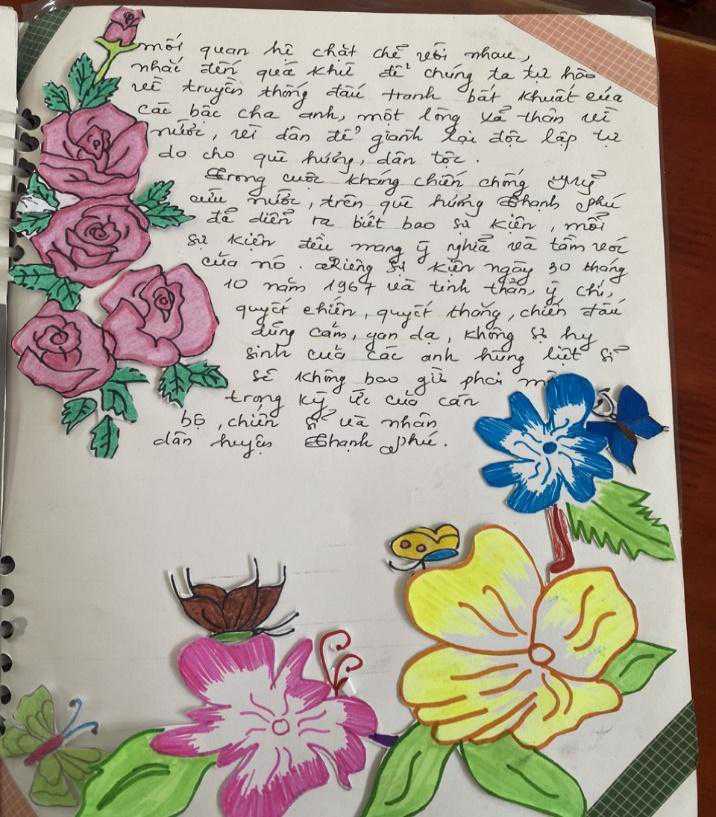 mối quan hệ chặt chẽ với nhau,
nhắc đến quá khứ để chúng ta tự hào
về truyền thống đấu tranh bất khuất của
các bậc cha anh, một lòng xả thân vì
nước, vì dân để giành lại độc lập tự
do cho quê hương, dân tộc.
Trong cuộc kháng chiến chống Mỹ
cứu nước, trên quê hương Thạnh Phú
đã diễn ra biết bao sự kiện, mỗi
sự kiện đều mang ý nghĩa và tầm vóc
của nó. Riêng sự kiện ngày 30 tháng
10 năm 1967 và tinh thần, ý chí,
quyết chiến, quyết thắng, chiến đấu
dũng cảm, gan dạ, không sợ hy
sinh của các anh hùng liệt sĩ
sẽ không bao giờ phai
trong ký ức của cán
bộ, chiến sĩ và nhân
dân huyện Thạnh Phú.